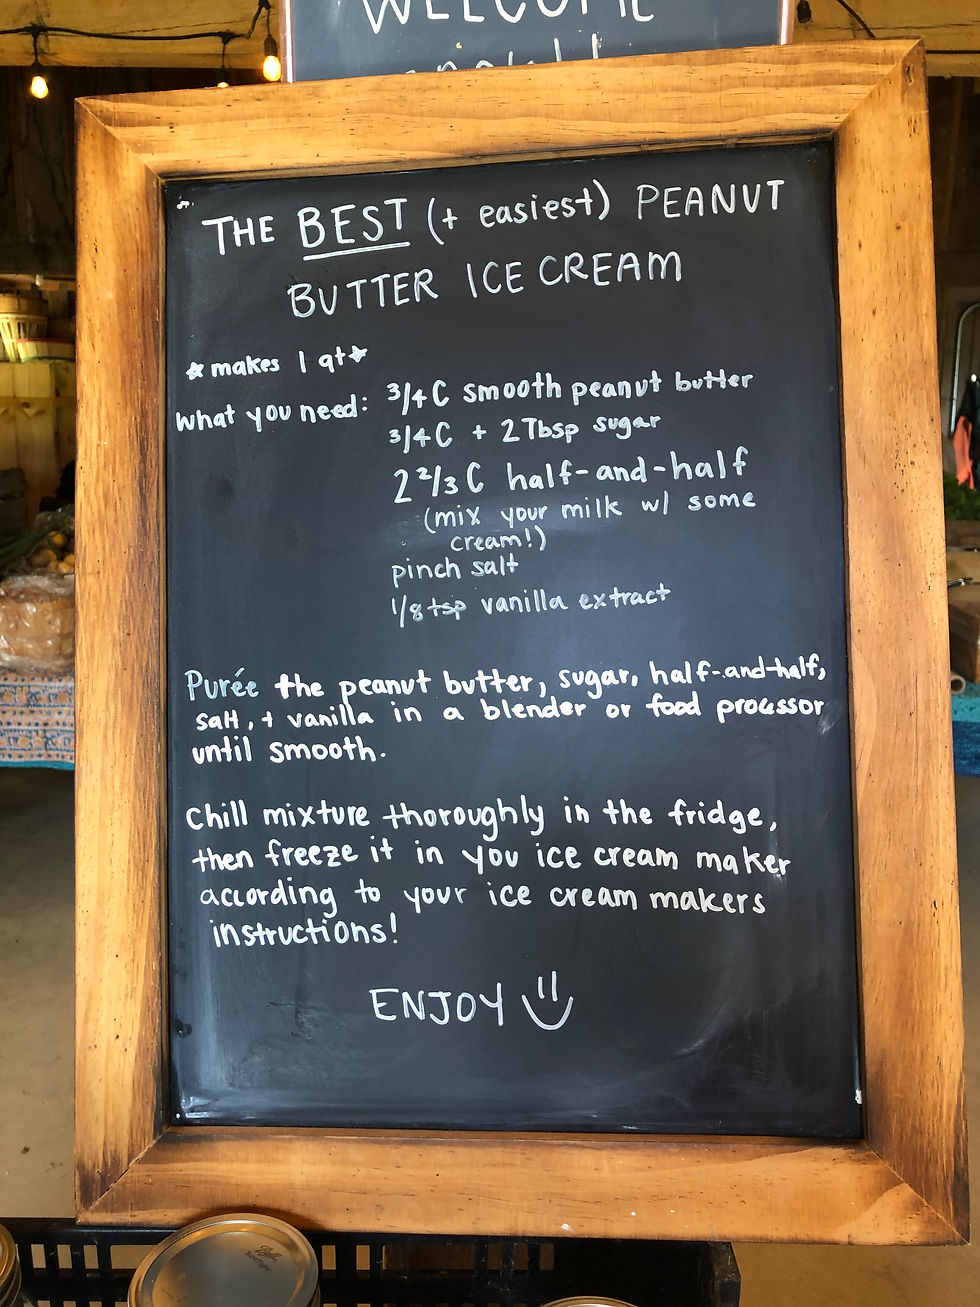 WELCOME
THE BEST (+ easiest) PEANUT
BUTTER ICE CREAM
*makes 1 qt*
what you need: 3/4 C smooth peanut butter
3/4 C + 2 Tbsp sugar
2 2/3 C half-and-half
(mix your milk w/ some
cream!)
pinch salt
1/8 tsp vanilla extract
Purée the peanut butter, sugar, half-and-half,
salt, + vanilla in a blender or food processor
until smooth.
Chill mixture thoroughly in the fridge,
then freeze it in you ice cream maker
according to your ice cream makers
instructions!
ENJOY
Ball